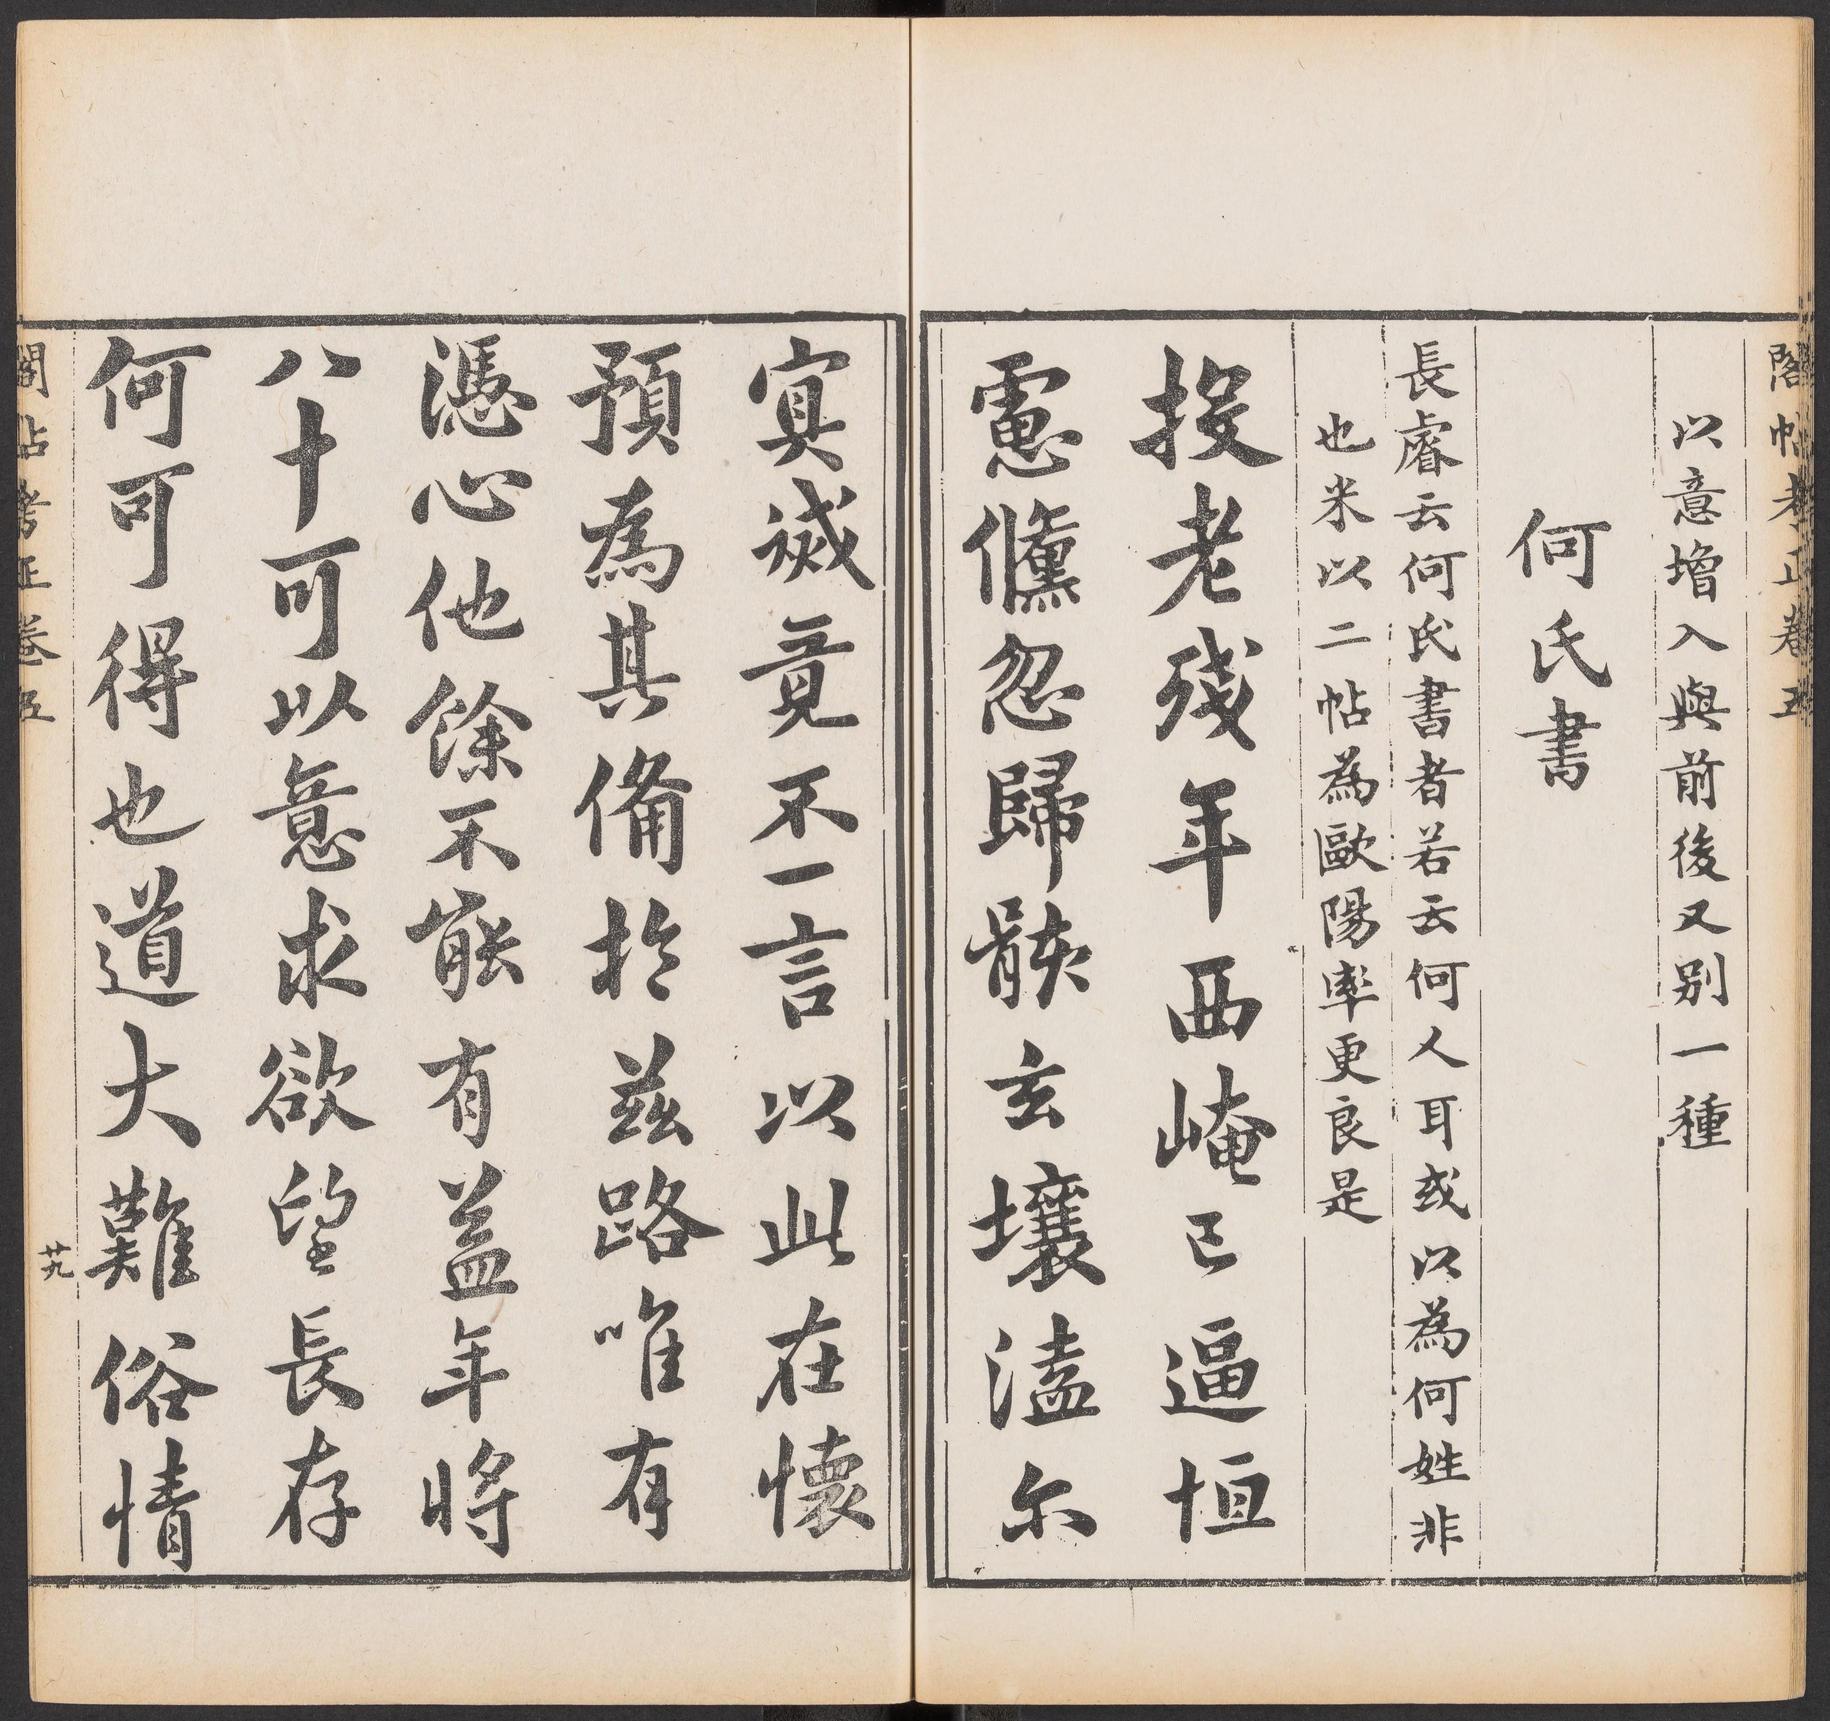 閣帖考正卷五
以意增入與前後又别一種
何氏書
長睿云何氏書者若云何人耳或以為何姓非
也米以二帖為歐陽率更良是
投老殘年西崦已逼恒
慮儵忽歸骸玄壤溘尔
寘諴竟不一言以此在懷
預為其備於兹路唯有
憑心他餘不能有益年將
八十可以意求欲望長存
何可得也道大難俗情
閣帖考正卷五
廿九